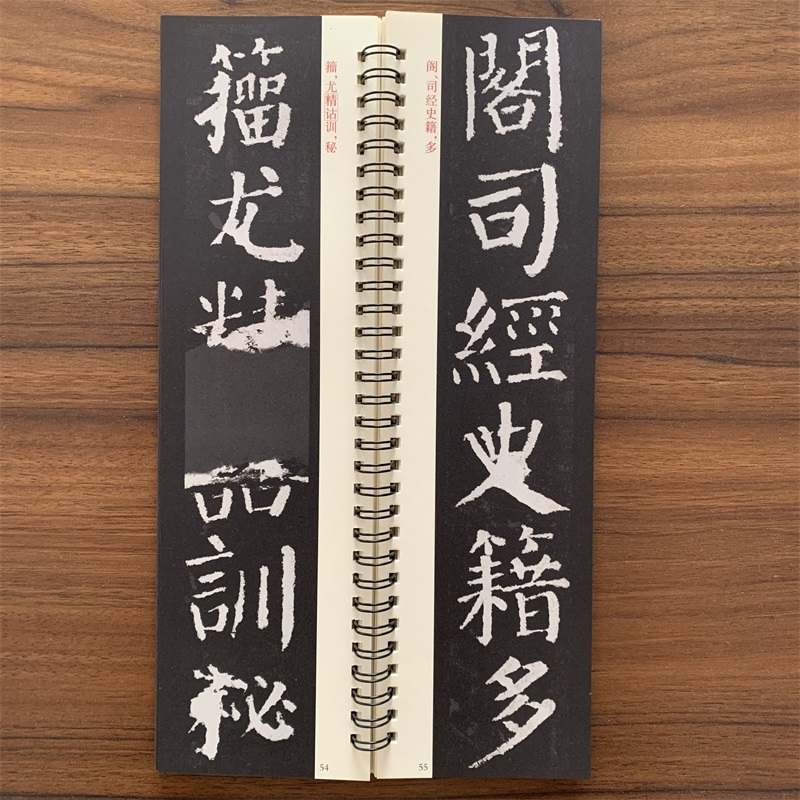 籀尤訓秘
籀，尤精诂训，秘
54
閣司經史籍多
阁、司经史籍，多
55